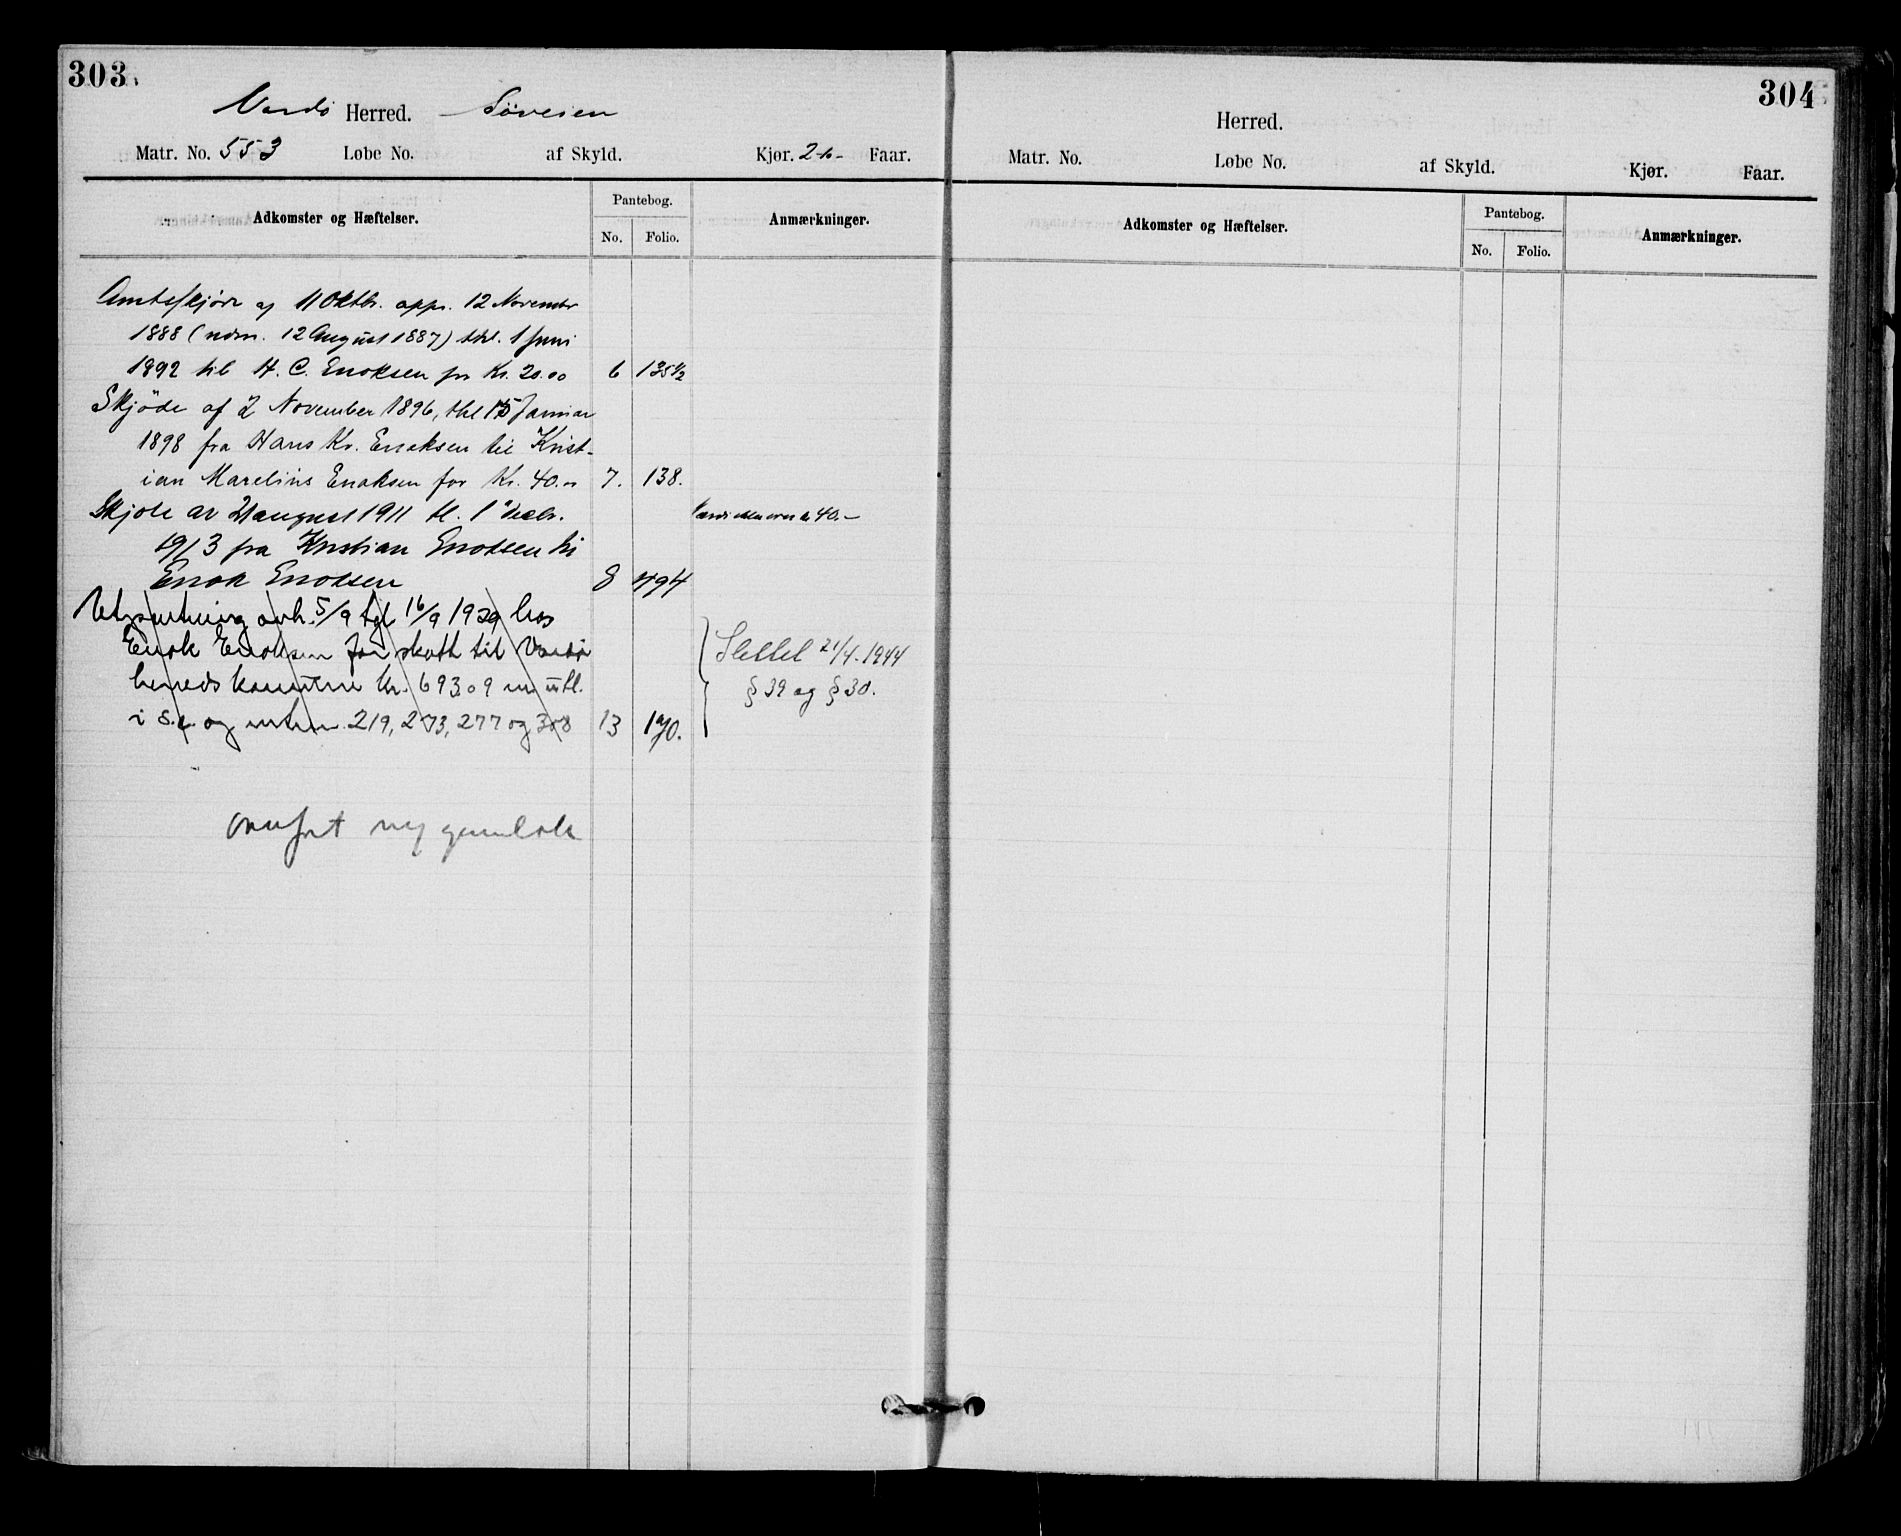 303.
Vardö Herred. Söveien
Matr. No. 553 Løbe No. af Skyld. Kjør. Faar.
Adkomster og Hæftelser. Pantebog. Anmærkninger.
No. Folio.
Amtsskjöde af 11 Oktbr. app. 12 Novembr
1888 (udm. 12 August 1887) thl. 1 Juni
1892 til H. C. Enoksen for Kr. 20.00 6 135½
Skjöde af 2 November 1896, thl 15 Januar
1898 fra Hans Kr. Enoksen til Krist-
ian Marelius Enoksen for Kr. 40.00 7. 138.
Skjöte av 21 august 1911 tl. 1 decbr. 40.-
1913 fra Kristian Enoksen til
Enok Enoksen 8 494
Utpantning avh. 5/9 tgl 16/9 1929 hos
Enok Enoksen for skatt til Vardö
herredskommune kr. 693.09 m. utl. Slettet 21/4-1944
§ 39 og § 30.
i s.e. og mtrn. 219, 273, 277 og 308 13 170.
Overfört ny grunnbok
304
Herred.
Matr. No. Løbe No. af Skyld. Kjør. Faar.
Adkomster og Hæftelser. Pantebog. Anmærkninger.
No. Folio.